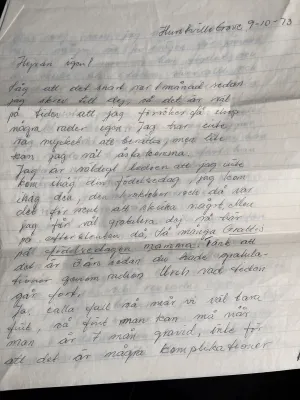 Huntsville Grove 9-10-73
Hejsan igen!
Såg att det snart var 1 månad sedan
jag skrev till dej, så det är väl
på tiden att jag försöker få iväg
några rader igen. Jag har inte
så mycket att berätta, men lite
kan jag väl åstadkomma.
Jag är väldigt ledsen att jag inte
kom ihåg din födelsedag, jag kom
ihåg den, den oktober och då var
det för sent att skicka något. Men
jag får väl gratulera dej så här
på efterskott då, då många Grattis
på födelsedagen mamma. Tänk att
det är 3 år sedan du hade gratula-
tioner genom radion. Usch vad tiden
går fort.
Jo, calla full så mår vi väl bara
fint, så fint man kan må när
man är 7 mån gravid, inte för
att det är några komplikationer